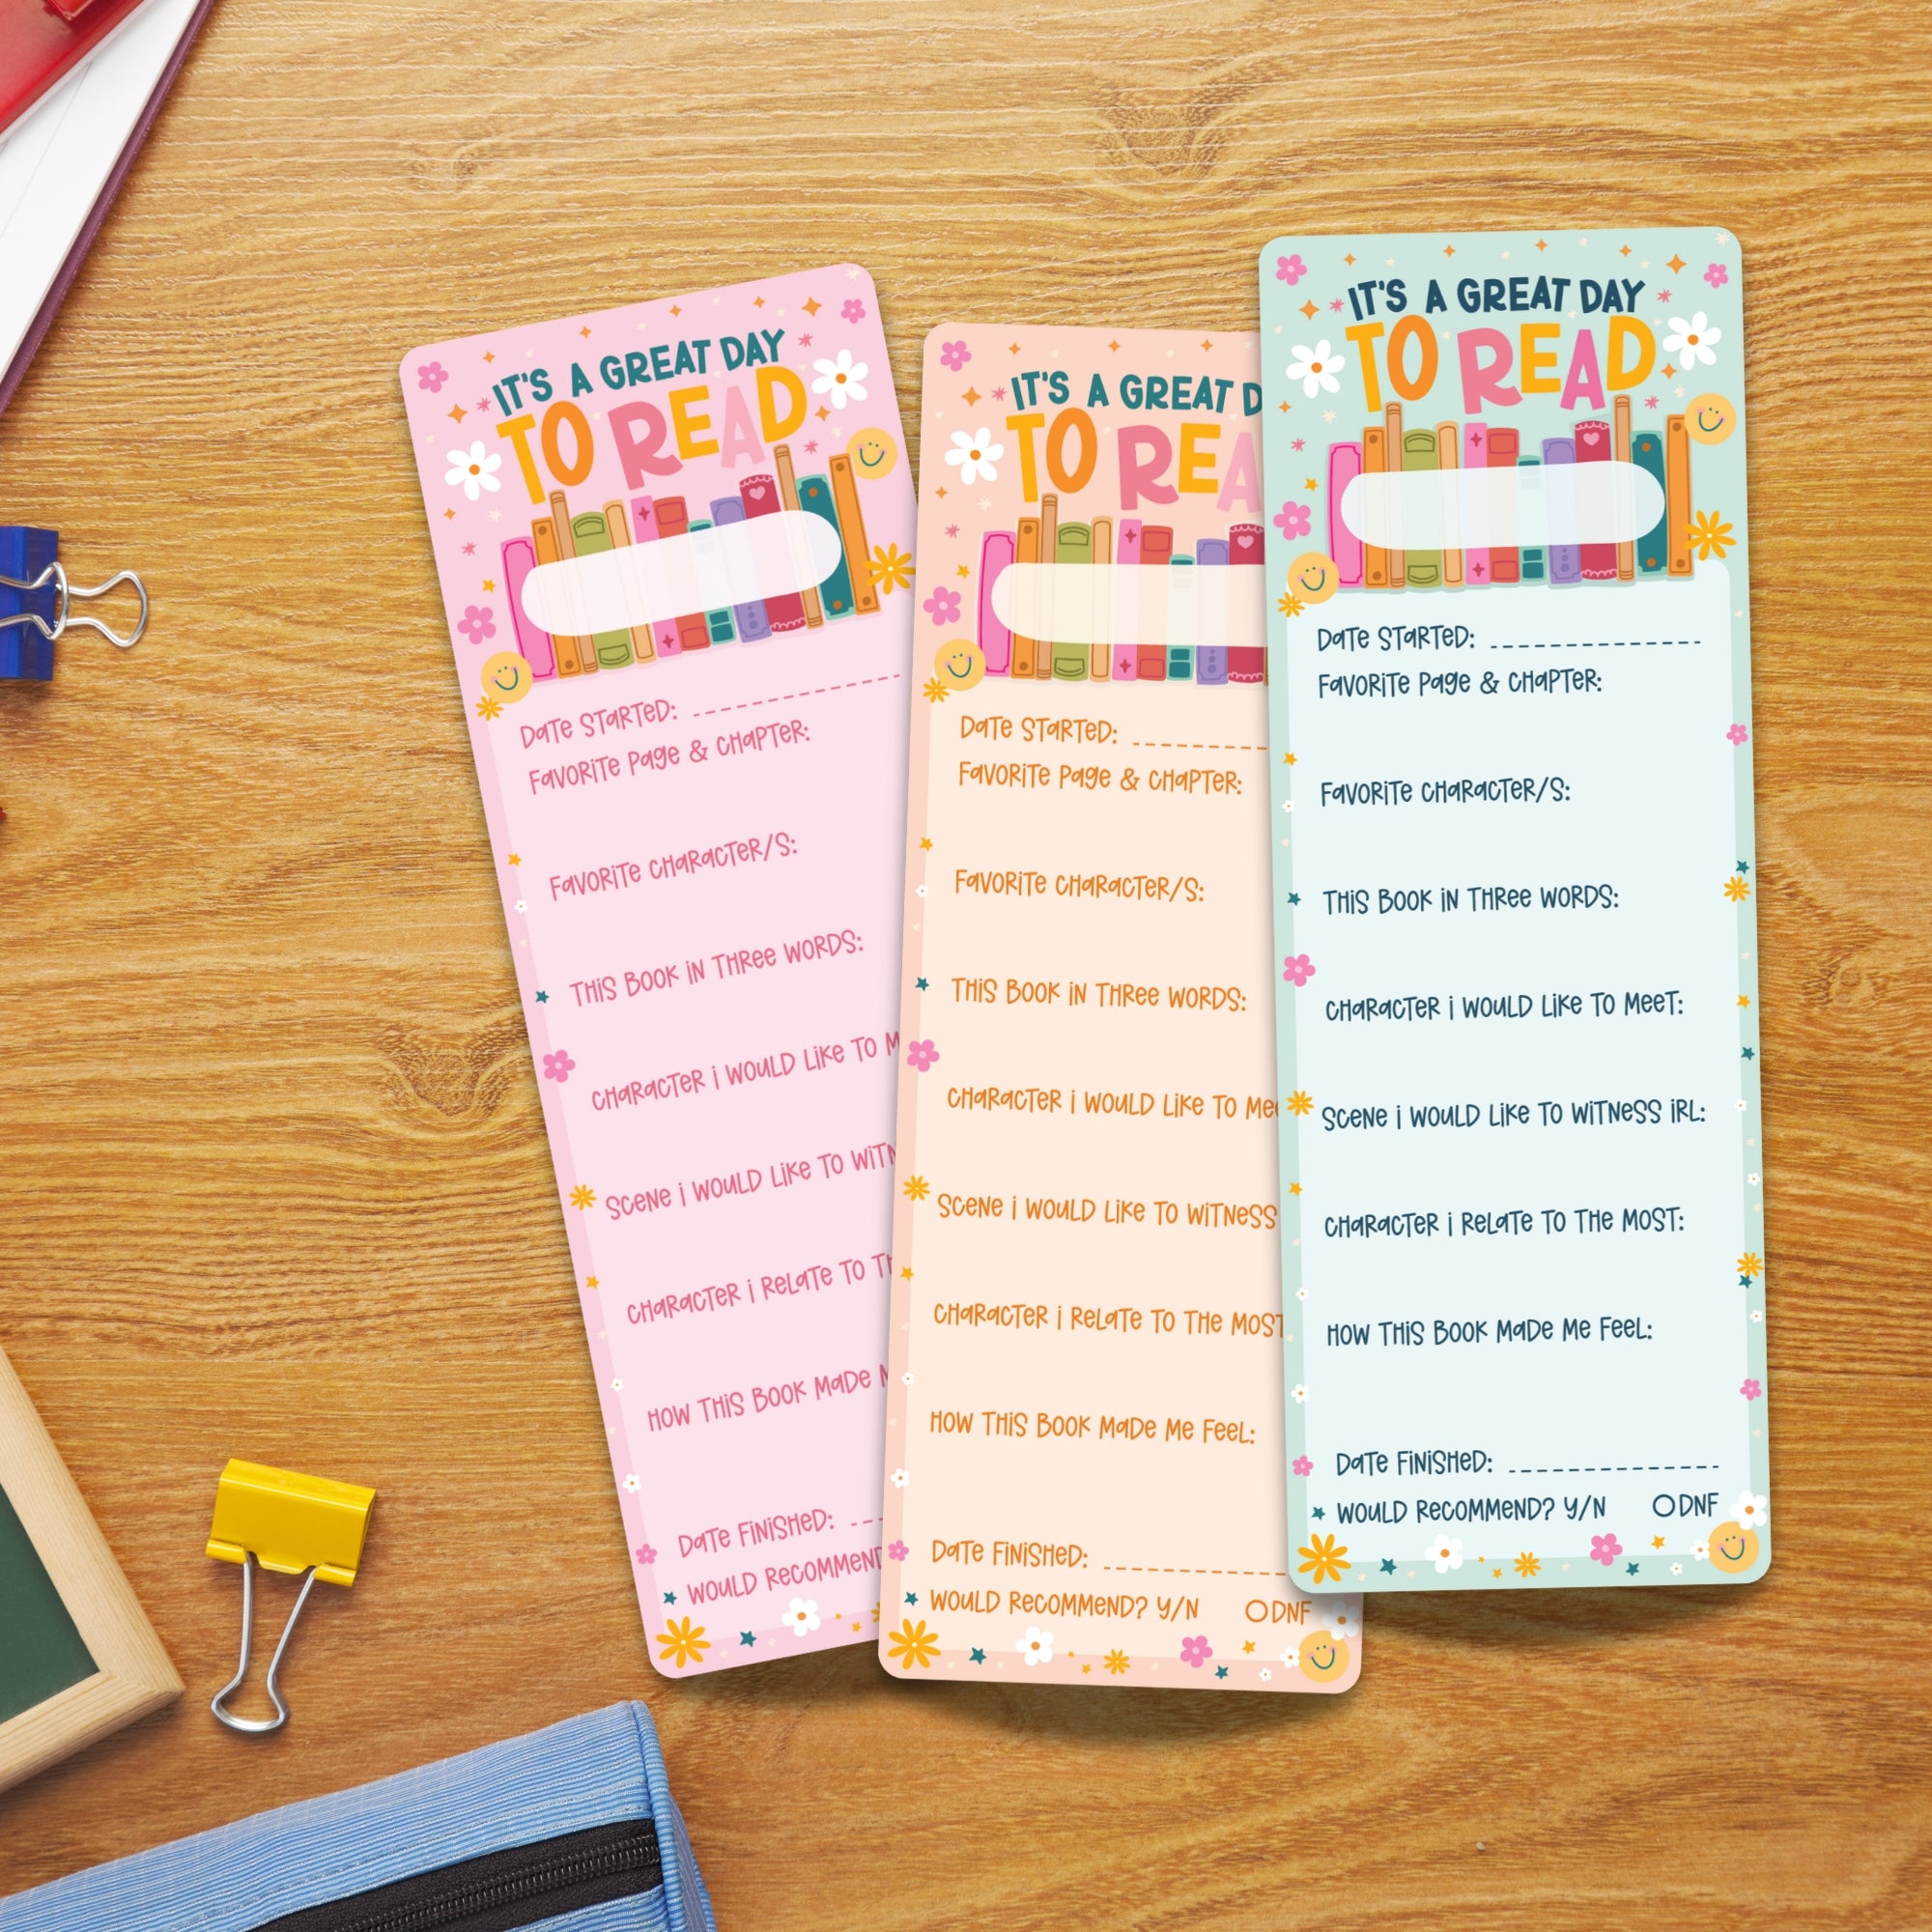 IT'S A GREAT DAY
TO READ
DATE STARTED:
FAVORITE PAGE & CHAPTER:
FAVORITE CHARACTER/S:
THIS BOOK IN THREE WORDS:
CHARACTER I WOULD LIKE TO M
SCENE I WOULD LIKE TO WITN
CHARACTER I RELATE TO TH
HOW THIS BOOK MADE M
DATE FINISHED:
WOULD RECOMMEND
IT'S A GREAT D
TO REA
DATE STARTED:
FAVORITE PAGE & CHAPTER:
FAVORITE CHARACTER/S:
THIS BOOK IN THREE WORDS:
CHARACTER I WOULD LIKE TO MEE
SCENE I WOULD LIKE TO WITNESS
CHARACTER I RELATE TO THE MOST
HOW THIS BOOK MADE ME FEEL:
DATE FINISHED:
WOULD RECOMMEND? Y/N DNF
IT'S A GREAT DAY
TO READ
DATE STARTED:
FAVORITE PAGE & CHAPTER:
FAVORITE CHARACTER/S:
THIS BOOK IN THREE WORDS:
CHARACTER I WOULD LIKE TO MEET:
SCENE I WOULD LIKE TO WITNESS IRL:
CHARACTER I RELATE TO THE MOST:
HOW THIS BOOK MADE ME FEEL:
DATE FINISHED:
WOULD RECOMMEND? Y/N DNF